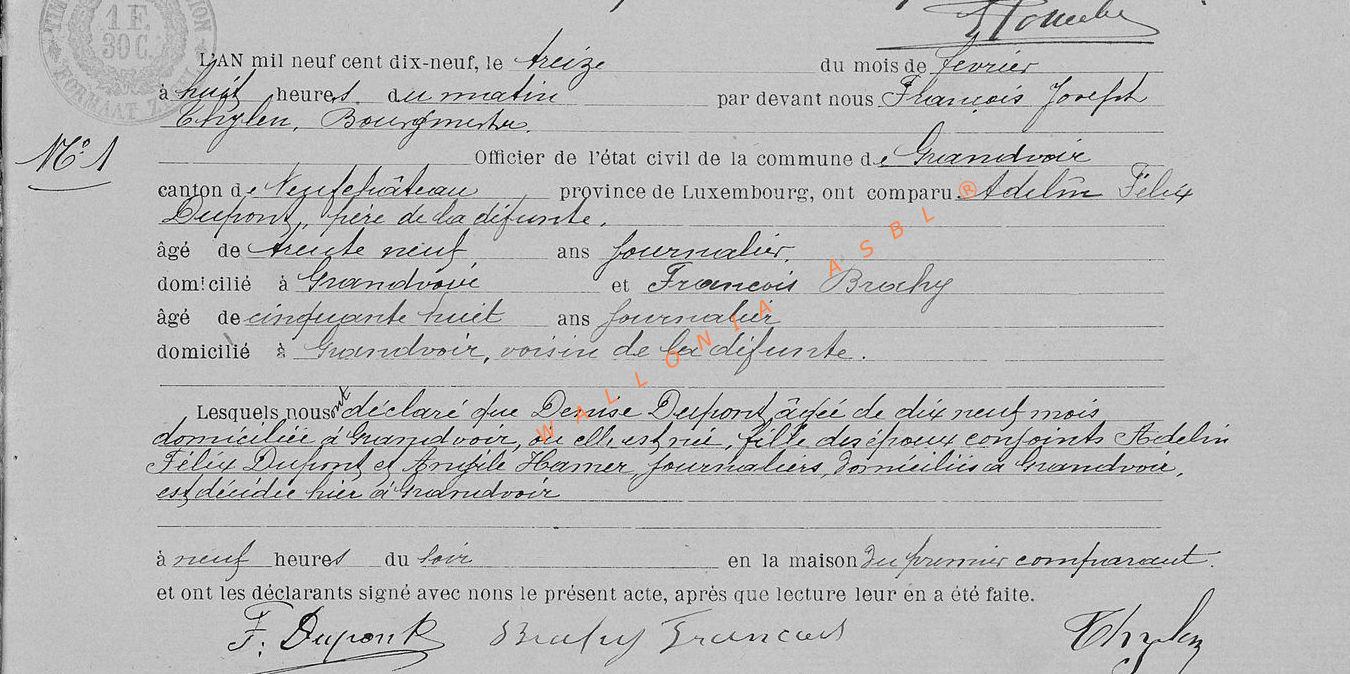 1 F.
30 C.
L'AN mil neuf cent dix-neuf, le treize du mois de février
à huit heures du matin par devant nous François Joseph
Thylen, Bourgmestre.
No 1
Officier de l'état civil de la commune de Grandvoir
canton de Neufchâteau province de Luxembourg, ont comparu Adelin Félix
Dupont, père de la défunte.
âgé de trente neuf ans journalier.
domicilié à Grandvoir et François Brahy
âgé de cinquante huit ans journalier
domicilié à Grandvoir, voisin de la défunte.
Lesquels nous ont déclaré que Denise Dupont, âgée de dix neuf mois
domiciliée à Grandvoir, où elle est née, fille des époux conjoints Adelin
Félix Dupont et Hamer, journaliers, domiciliés à Grandvoir,
est décédée hier à Grandvoir
à neuf heures du soir en la maison du premier comparant.
et ont les déclarants signé avec nous le présent acte, après que lecture leur en a été faite.
F. Dupont Brahy François Thylen
WALLONIA ASBL ®